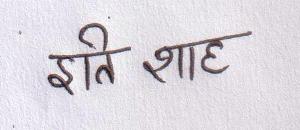 इति शाह